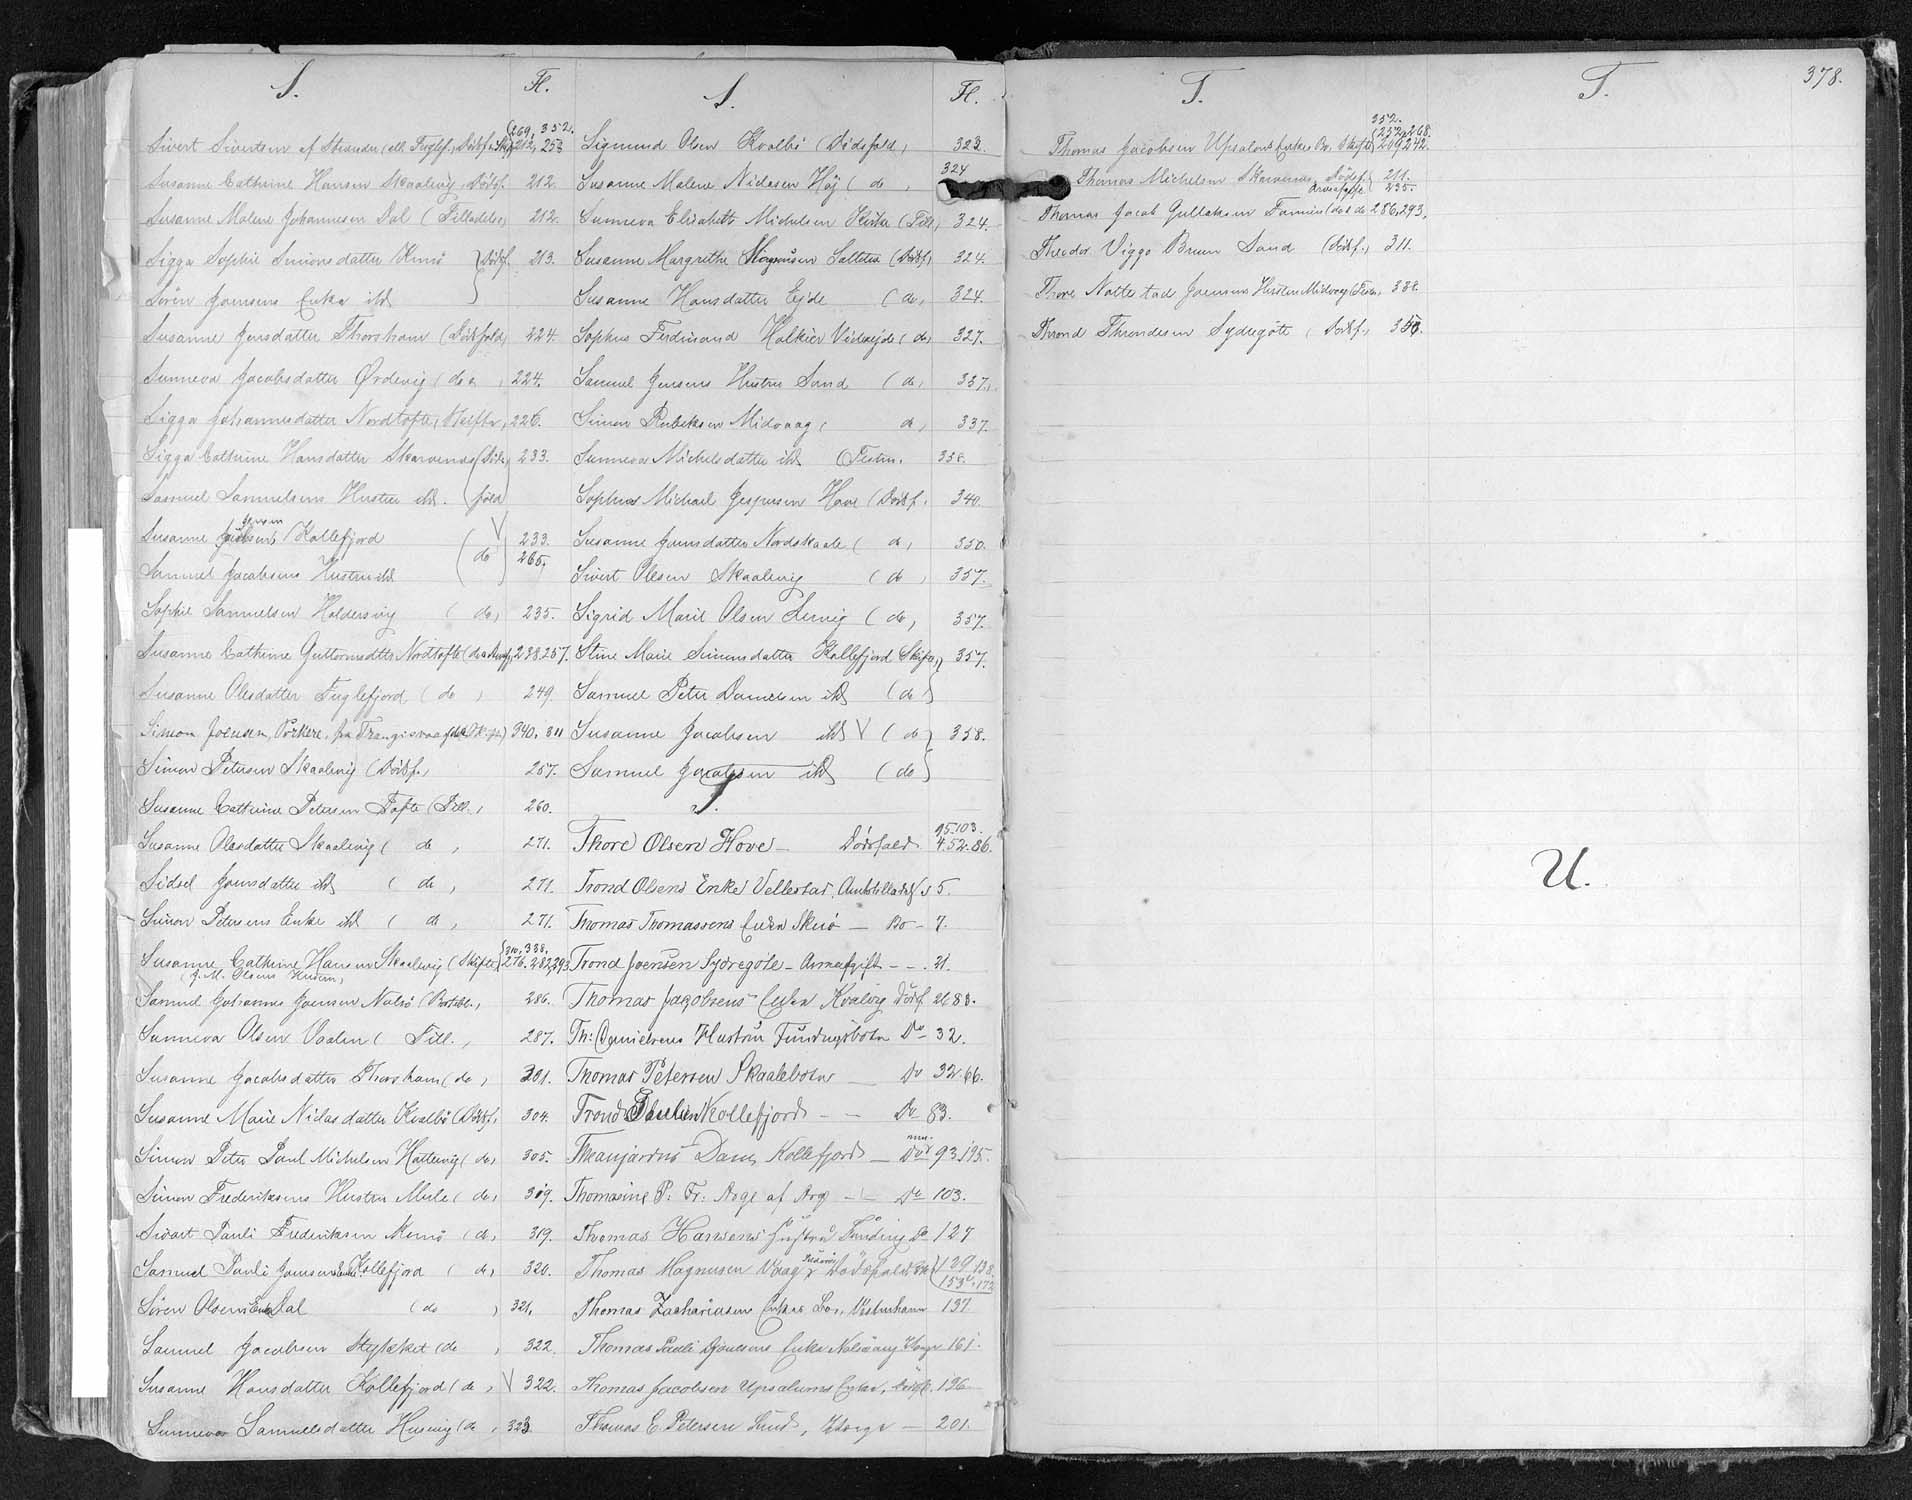 S. Fl.
Sivert Sivertsen af Strender (ell. Fuglef., Dödsf. & Skifte) 269, 352. 212, 253
Susanne Cathrine Hansen Skaalevig, Dödsf. 212.
Susanne Malene Johannesen Dal (Tilladelse) 212.
Sigga Sophie Simonsdatter Kunö } Dödsf. 213.
Sören Joensens Enke ibd
Susanne Jensdatter Thorshavn (Dödsfald) 224.
Sunneva Jacobsdatter Ørdevig (do 224.
Sigga Johannesdatter Nordtofte, Skifte, 226.
Sigga Cathrine Hansdatter Skarvenæs (Döds- 233.
Samuel Samuelsens Hustru ibd. fald
Susanne Jensen Kollefjord V 233.
Samuel Jacobsens Hustru ibd (do) 265.
Sophie Samuelsen Haldersvig (do) 235.
Susanne Cathrine Guttormsdtr Nordtofte 238. 257.
Susanne Olesdatter Fuglefjord (do) 249.
Simon Joensen, Porkere, fra Trangisvaag 340. 311
Simon Petersen Skaalevig (Dödsf.) 257.
Susanne Cathrine Petersen Tofte (Till.) 260.
Susanne Olesdatter Skaalevig (do, 271.
Sidsel Joensdatter ibd (do, 271.
Simon Petersens Enke ibd (do, 271.
Susanne Cathrine Hansen Skaalevig (Skifte) 310, 338, 276. 282, 293
(J. M. Olsens Hustru)
Samuel Johannes Joensen Nolsö 286.
Sunneva Olsen Vaalen (Till., 287.
Susanne Jacobsdatter Thorshavn (do, 301.
Susanne Marie Niclasdatter Kvalbö (Dödsf. 304.
Simon Peter Paul Michelsen Hattervig (do, 305.
Simon Frederiksens Hustru Mule (do, 319.
Sivart Pauli Frederiksen Kunö (do, 319.
Samuel Pauli Joensens Enke Kollefjord (do, 320.
Sören Olsens Enke Dal (do) 321.
Samuel Jacobsen (do, 322.
Susanne Hansdatter Kollefjord (do, V 322.
Sunneva Samuelsdatter Husevig (do, 323.
S. Fl.
Sigmund Olsen Kvalbö (Dödsfald, 323.
Susanne Malene Niclasen Høj (do, 324
Sunneva Elisabeth Michelsen (Till, 324.
Susanne Margrethe Mogensen (Dödsf, 324.
Susanne Hansdatter Ejde (do, 324.
Sophus Ferdinand Halkier Videreide (do, 327.
Samuel Jensens Hustru Sand (do, 337.
Simon Rubeksen Midvaag (do, 337.
Sunneva Michelsdatter ibd (Testm. 358.
Sophus Michael Jespersen Hove (Dödsf. 340.
Susanne Joensdatter Nordskaale (do, 350.
Sivert Olesen Skaalevig (do, 357.
Sigrid Marie Olsen Lervig (do, 357.
Stine Marie Simonsdatter Kollefjord Skifte, 357.
Samuel Peter Danielsen ibd (do)
Susanne Jacobsen ibd V (do) 358.
Samuel Jacobsen ibd (do)
T.
Thore Olsen Hove — Dödsfald 95. 103. 4. 52. 86.
Trond Olsens Enke Vellestad, 5.
Thomas Thomassens Enke Skuö — Bo — 7.
Trond Joensen Sydregöte — Arveafgift — 21.
Thomas Jacobsens Enke Kvalvig Dödsf. 26 83.
Th: Danielsens Hustru Fundingsbotn Do 32.
Thomas Petersen Skaalebotn — Do 32. 66.
Trond Poulsen Kollefjord — — Do 83.
Dam, Kollefjord — Do 93. 195.
Thomasine P: Fr: Arge af Arge — Do 103.
Thomas Hansens Hustru Funding Do 127
Thomas Magnusen Vaag, Dödsfald 129, 138. 153, 172
Thomas Zachariasens Enkes Bo, Vestmanhavn 137
Thomas Pauli Djonesens Enke 161.
Thomas Jacobsen Upsalums Enke, Dödsf. 196
Thomas E. Petersen Sund, Korge — 201.
T.
Thomas Jacobsen Upsalons Enkes Bo, Skifte 352. 252, 268. 209, 242.
Thomas Michelsen Skarvenæs, Dödsf. 211.
Arveafgift 235.
Thomas Jacob Gulleksen Famien (do & do 286, 293,
Theodor Viggo Bruun Sand (Dödsf., 311.
Thore Nattestad Joensens Hustru Midvaag (Testm, 338.
Thrond Throndesen Sydregöte (Dödsf., 350.
T. 378.
U.